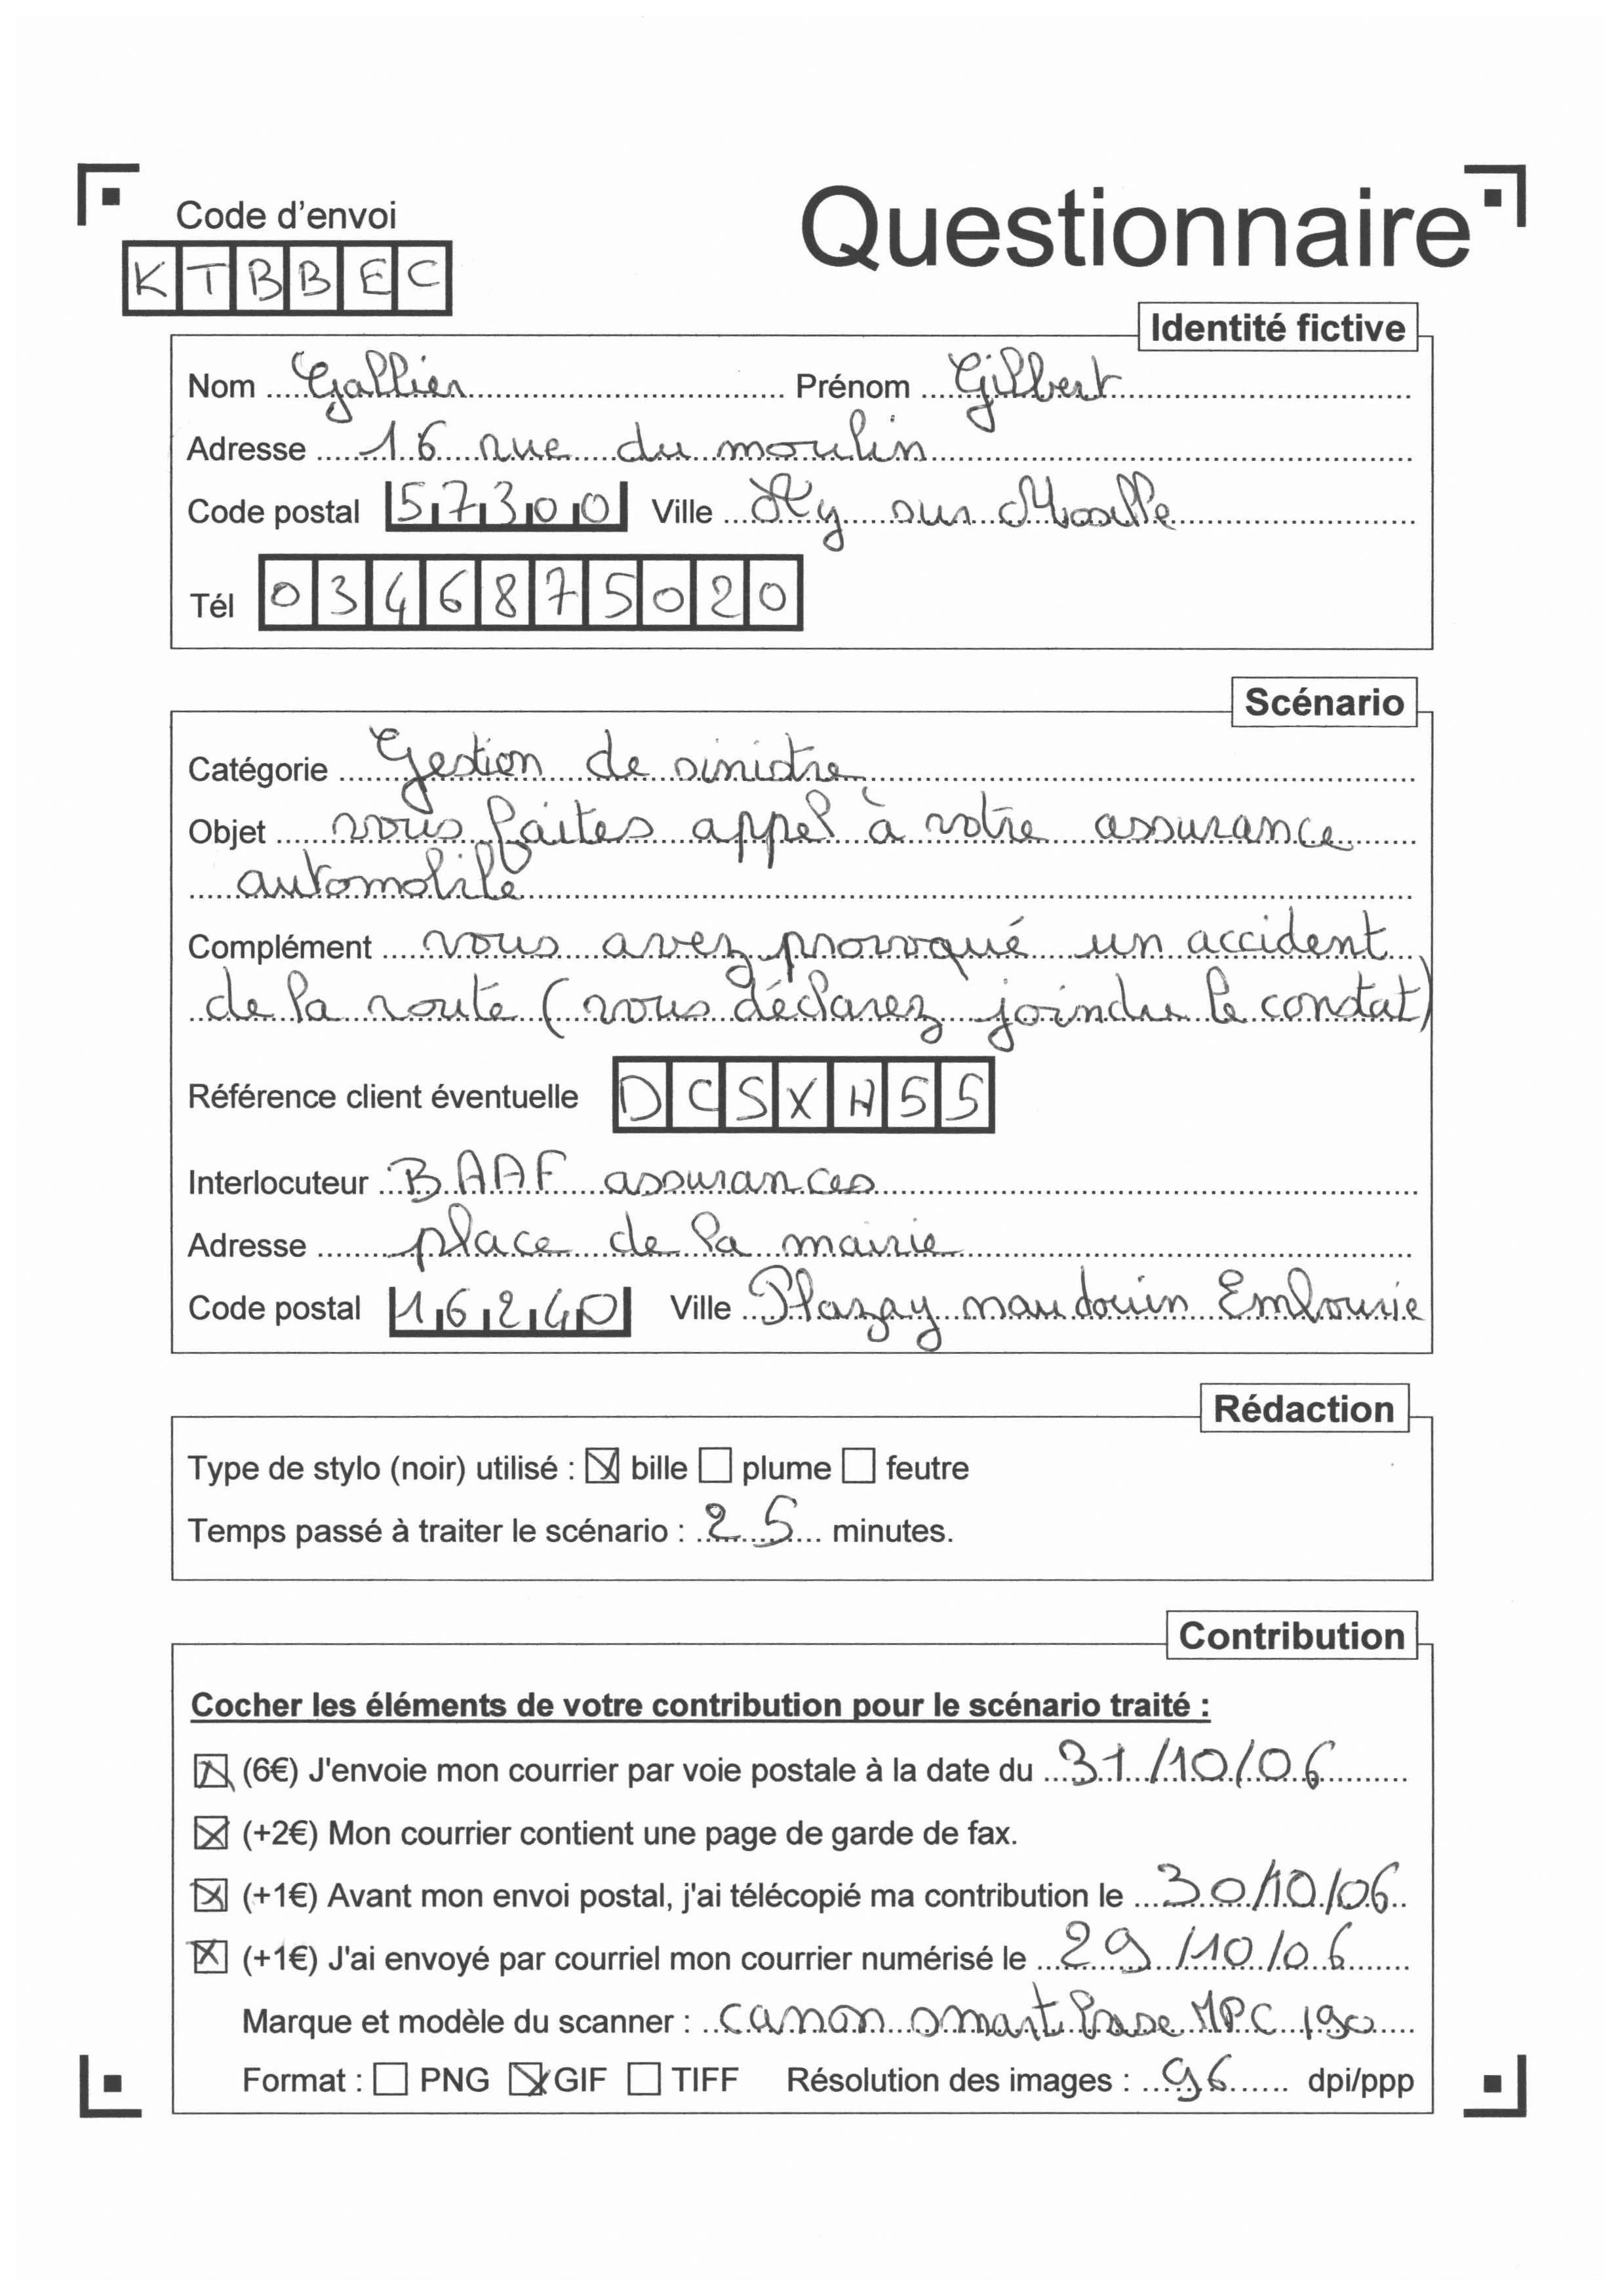 Code d'envoi
KTBBEC
Questionnaire
Identité fictive
Nom Gallien Prénom Gilbert
Adresse 16 rue du moulin
Code postal 57300 Ville Ay sur Moselle
Tél 0346875020
Scénario
Catégorie Gestion de sinistre
Objet vous faites appel à votre assurance
automobile
Complément vous avez provoqué un accident
de la route (vous déclarez joindre le constat)
Référence client éventuelle DCSXH55
Interlocuteur BAAF assurances
Adresse place de la mairie
Code postal 16240 Ville Embourie
Rédaction
Type de stylo (noir) utilisé : ☒ bille ☐ plume ☐ feutre
Temps passé à traiter le scénario : 25 minutes.
Contribution
Cocher les éléments de votre contribution pour le scénario traité :
☒ (6€) J'envoie mon courrier par voie postale à la date du 31/10/06
☒ (+2€) Mon courrier contient une page de garde de fax.
☒ (+1€) Avant mon envoi postal, j'ai télécopié ma contribution le 30/10/06
☒ (+1€) J'ai envoyé par courriel mon courrier numérisé le 29/10/06
Marque et modèle du scanner : canon smart base MPC 190
Format : ☐ PNG ☒ GIF ☐ TIFF Résolution des images : 96 dpi/ppp